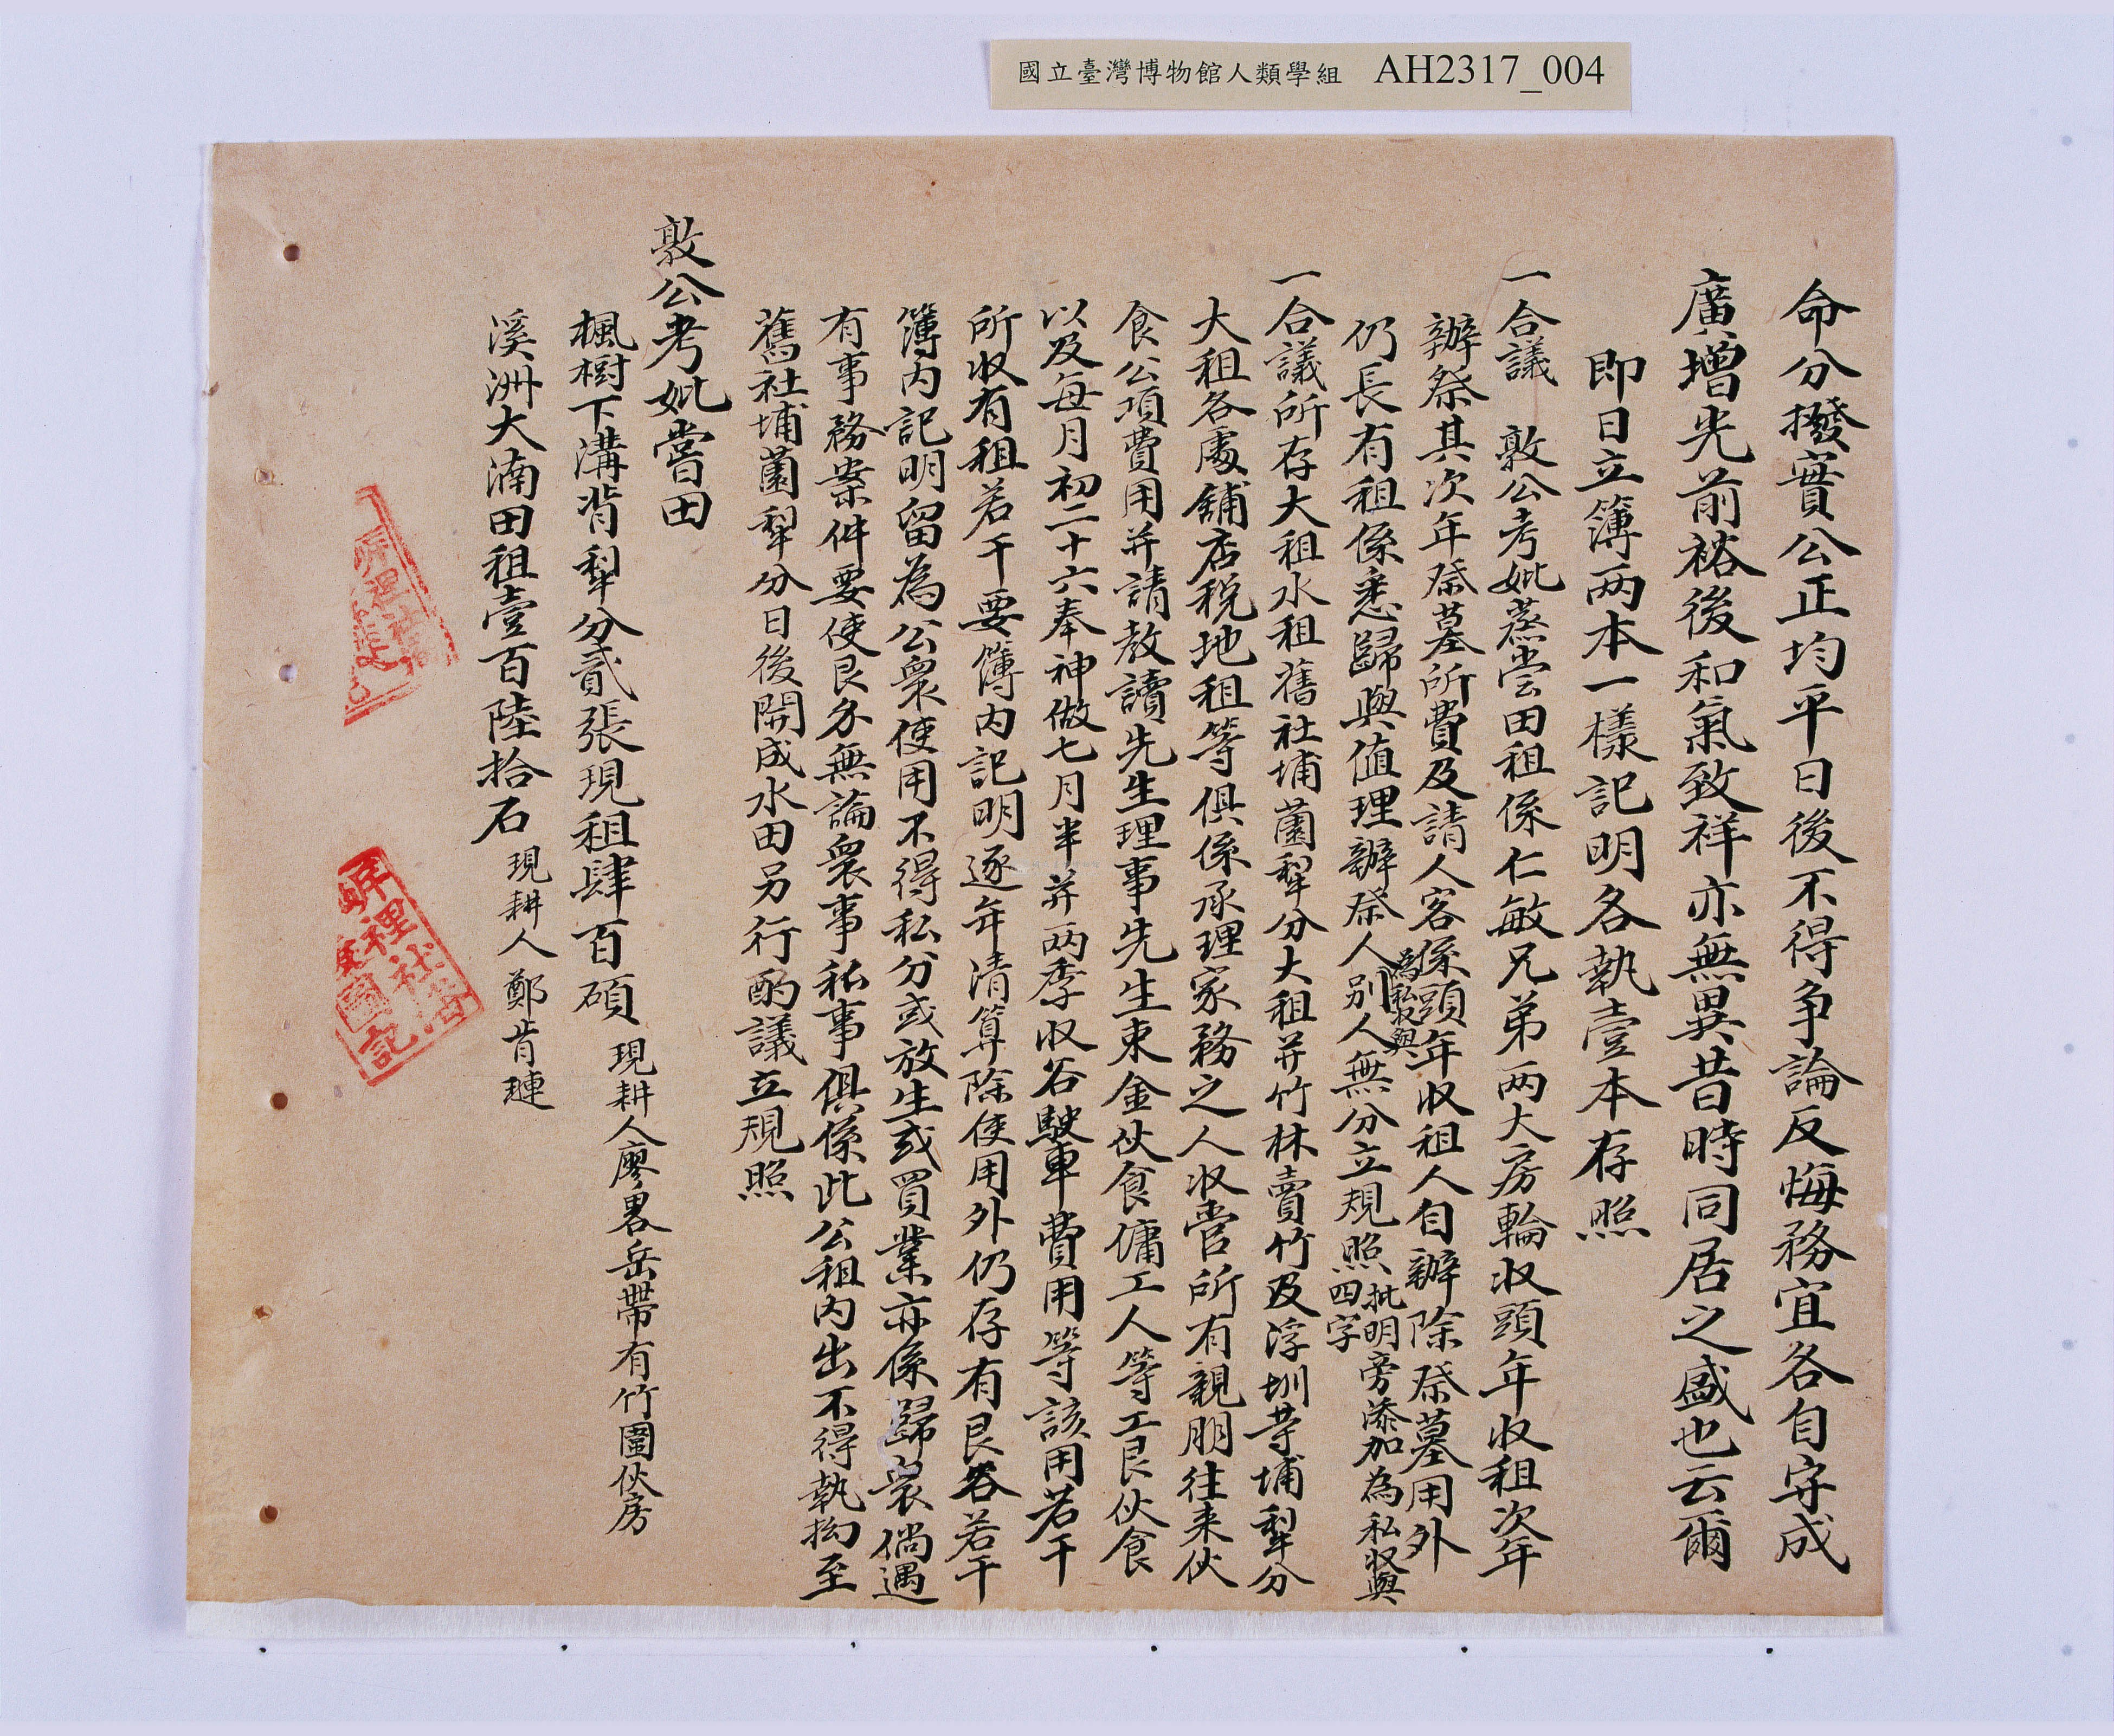 國立臺灣博物館人類學組 AH2317_004
命分撥實公正均平日後不得争論反悔務宜各自守成
廣增光前裕後和氣致祥亦無異昔時同居之盛也云爾
即日立簿两本一樣記明各執壹本存照
一合議 敦公考妣蒸尝田租係仁敏兄弟两大房輪收頭年收租次年
辦祭其次年祭墓所費及請人客係頭年收租人自辦除祭墓用外
為私收與
仍長有租係悉歸與值理辦祭人別人無分立規照批明旁添加為私收與四字
一合議所存大租水租舊社埔薗犁分大租并竹林賣竹及浮圳等埔犁分
大租各處舖店税地租等俱係承理家務之人收管所有親朋往来伙
食公項費用并請教讀先生理事先生束金伙食傭工人等工艮伙食
以及每月初二十六奉神做七月半并两季收谷駛車費用等該用若干
所收有租若干要簿内記明逐年清算除使用外仍存有艮谷若干
簿内記明留為公衆使用不得私分或放生或買業亦係歸衆倘遇
有事務案件要使艮多無論衆事私事俱係此公租内出不得執拗至
舊社埔薗犁分日後開成水田另行酌議立規照
敦公考妣嘗田
楓樹下溝背犁分貳張現租肆百碩 現耕人廖畧岳帶有竹圍伙房
溪洲大湳田租壹百陸拾石 現耕人鄭肯璉
岸裡社
岸裡社
圖記